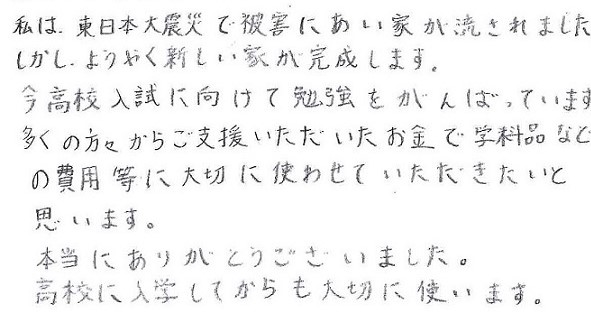 私は、東日本大震災で被害にあい家が流されました
しかし、ようやく新しい家が完成します。
今高校入試に向けて勉強をがんばっています
多くの方々からご支援いただいたお金で学料品など
の費用等に大切に使わせていただきたいと
思います。
本当にありがとうございました。
高校に入学してからも大切に使います。